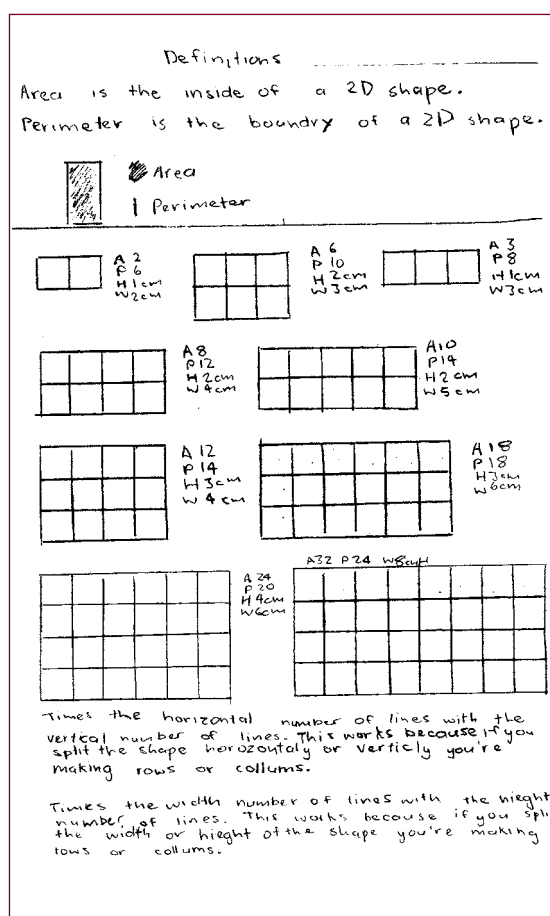 Definitions
Area is the inside of a 2D shape.
Perimeter is the boundry of a 2D shape.
Area
Perimeter
A 2
P 6
H 1cm
W 2cm
A 6
P 10
H 2cm
W 3cm
A 3
P 8
H 1cm
W 3cm
A 8
P 12
H 2cm
W 4cm
A 10
P 14
H 2cm
W 5cm
A 12
P 14
H 3cm
W 4cm
A 18
P 18
H 3cm
W 6cm
A 24
P 20
H 4cm
W 6cm
A32 P24 W8cm
Times the horizontal number of lines with the
vertical number of lines. This works because if you
split the shape horozontaly or verticly you're
making rows or collums.
Times the width number of lines with the hieght
number of lines. This works because if you spli
the width or hieght of the shape you're making
rows or collums.